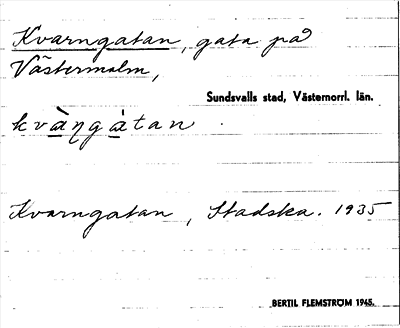 Kvarngatan, gata på
Västermalm,
Sundsvalls stad, Västernorrl. län.
kvàŋgàtan
Kvarngatan, Stadska. 1935
BERTIL FLEMSTRÖM 1945.